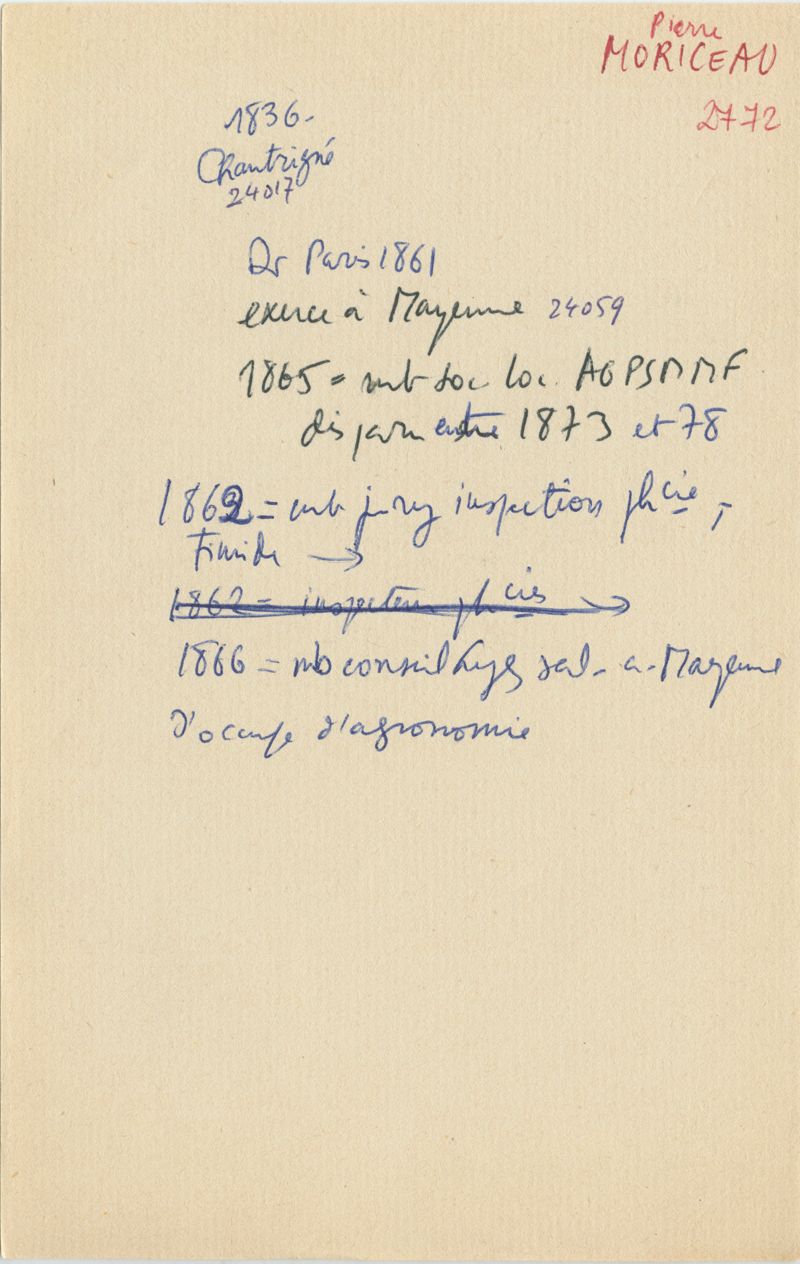 Pierre
MORICEAU
2772
1836-
Chantrigné
24017
Dr Paris 1861
exerce à Mayenne 24059
1865 = mb soc loc AGPSMMF
disparu entre 1873 et 78
1862 = mb jury inspection phcie,
1862 = inspecteur phcies
1866 = mb conseil hyg sal- a- Mayenne
s'occupe d'agronomie